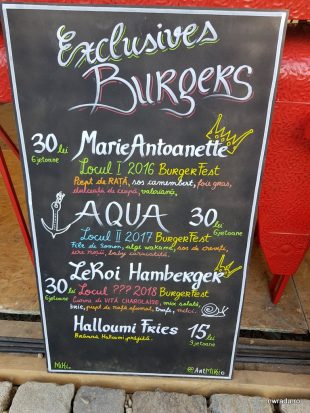 Exclusives
BURGERS
30 lei Marie Antoanette
6 jetoane Locul I 2016 BURGERFEST
Piept de RAȚĂ, sos camembert, foie gras,
dulceață de ceapă, valeriană,
AQUA 30 lei
Locul II 2017 BURGERFest 6 jetoane
File de somon, alge wakame, sos de creveți,
icre roșii, baby
LeRoi Hamberger
30 lei Locul ??? 2018 BURGERFest
6 jetoane Carne de VITĂ CHAROLAISE, mix salată
brie, piept de rață afumat, trufe, melci.
Halloumi Fries 15 lei
Brânză Halloumi prăjită. 3 jetoane